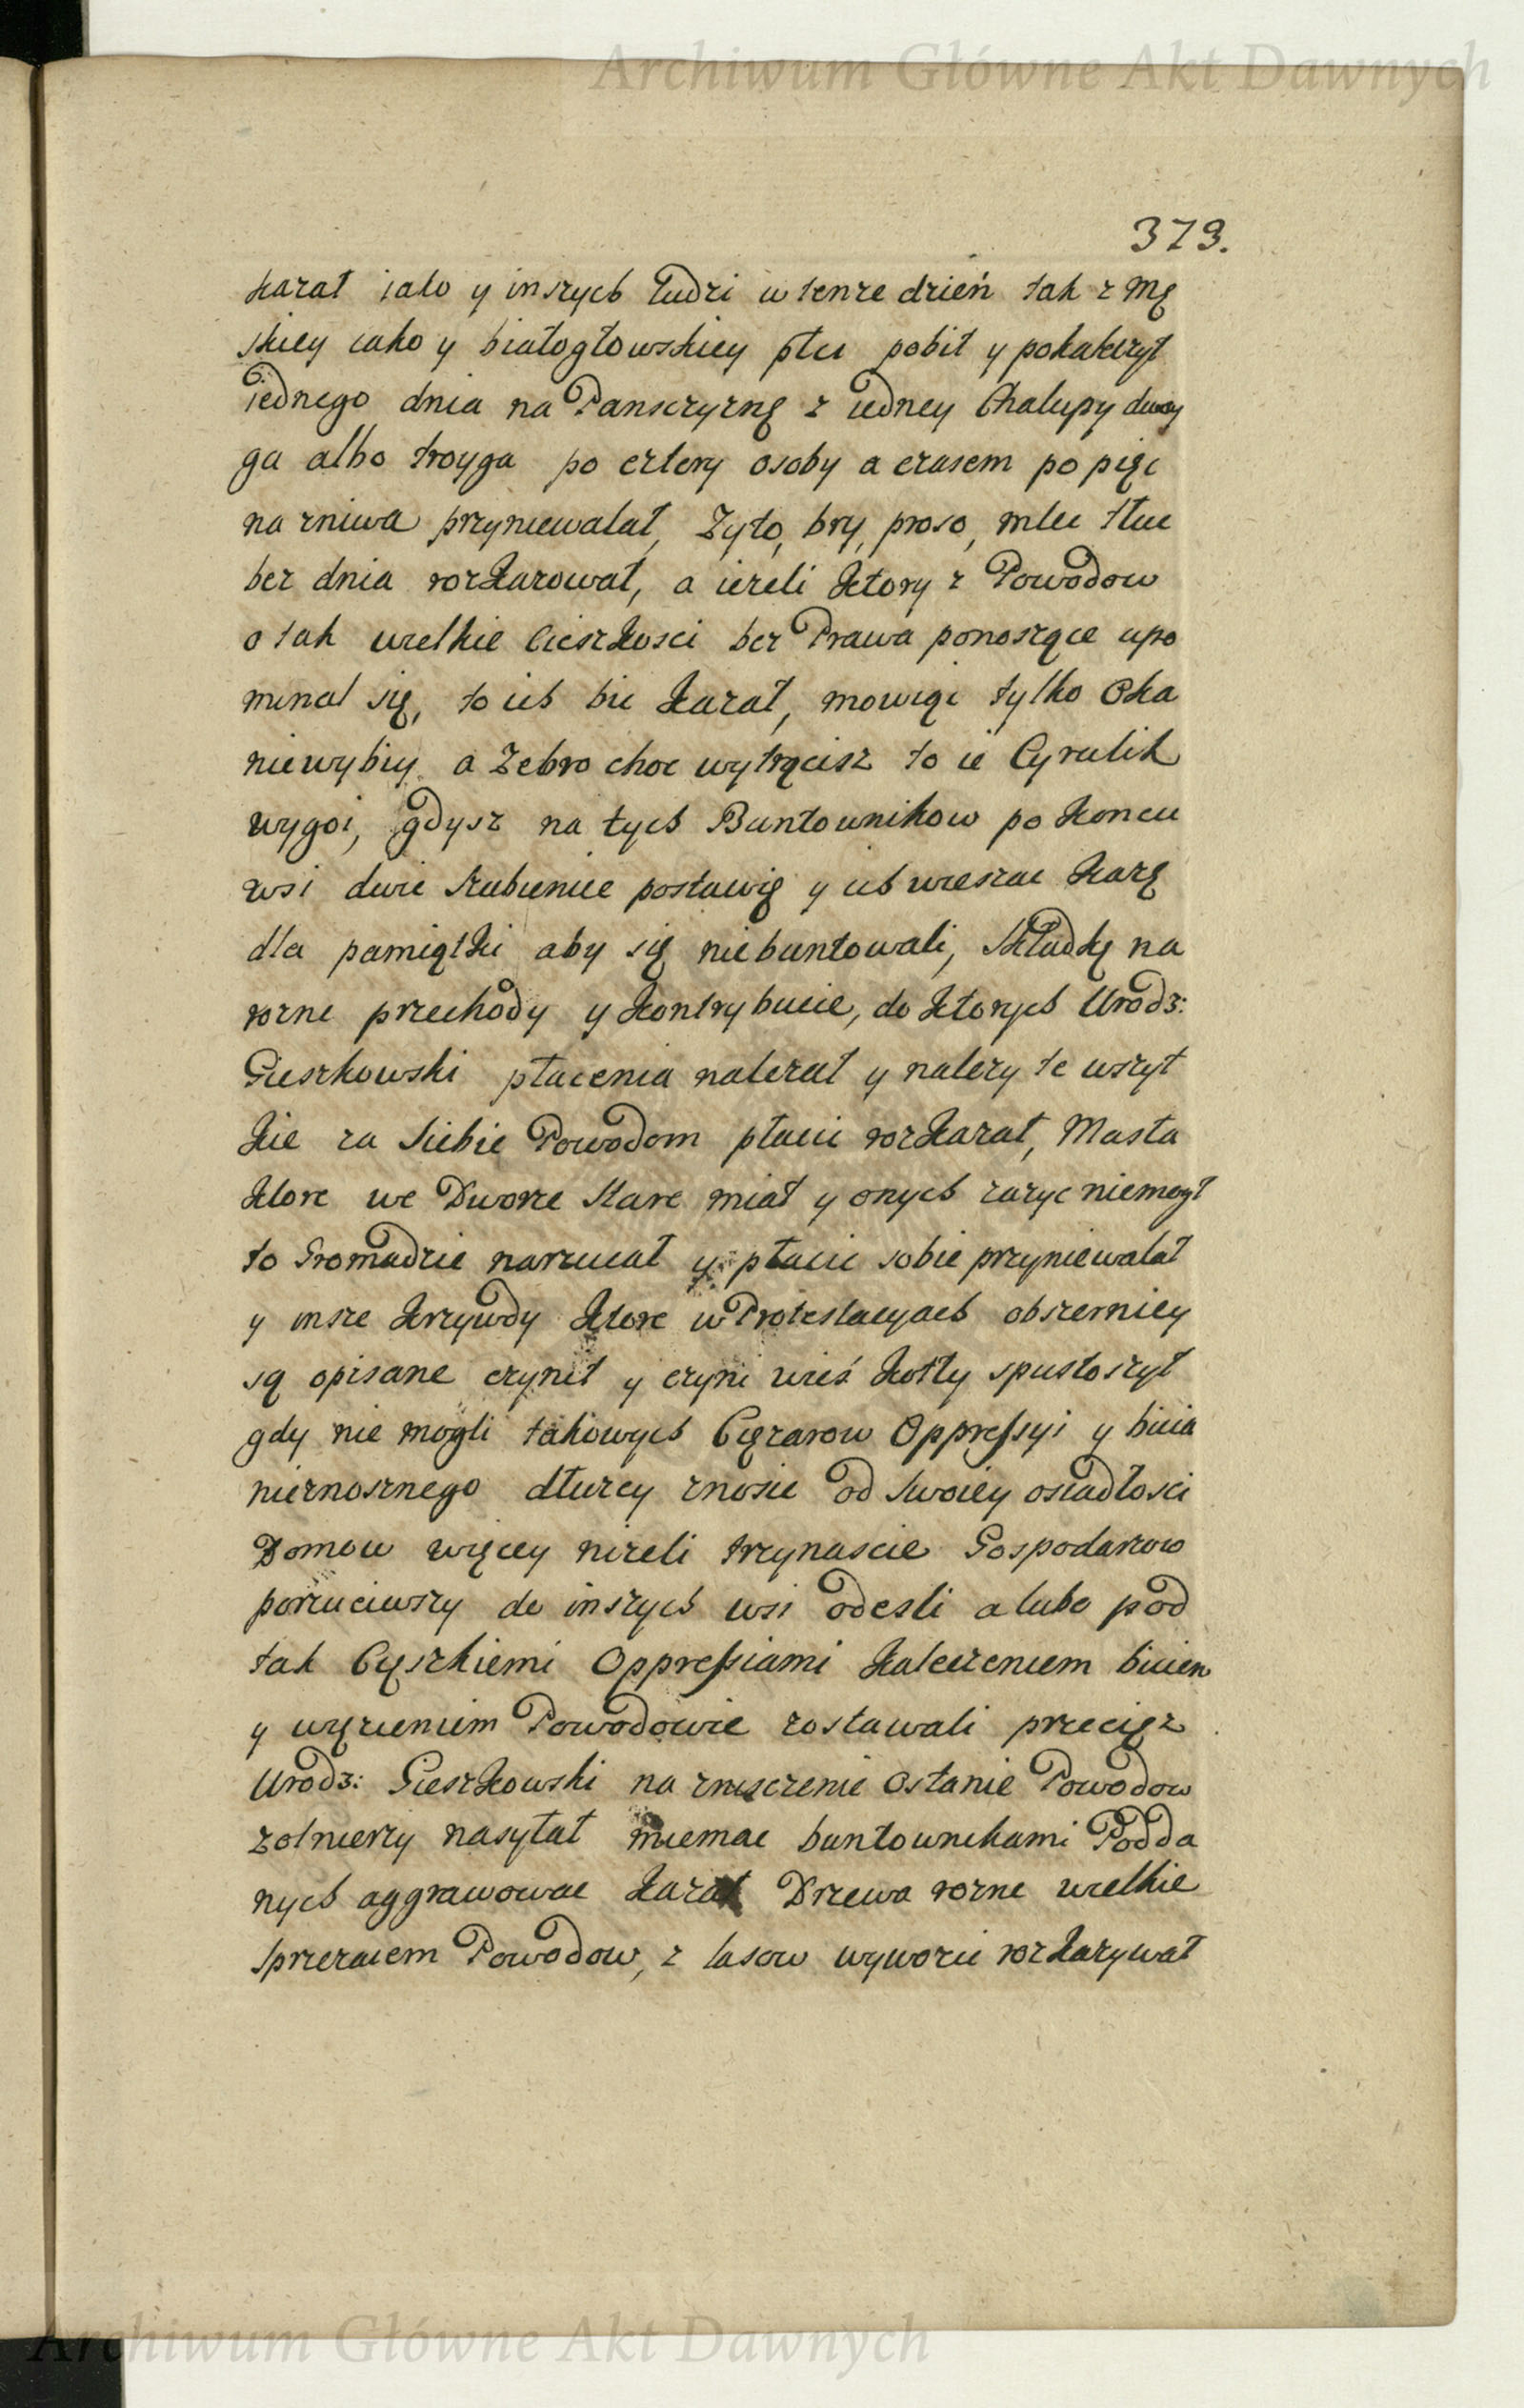 Archiwum Główne Akt Dawnych
373.
kazał iako y inszych ludzi w tenze dzień tak z Mę
skiey iako y białogłowskiey płci pobił y pokaleczył
iednego dnia na Panszczyznę z iedney Chałupy dwoy
ga albo troyga po cztery osoby a czasem po pięc
na zniwa przyniewalał, Zyto, bry, proso, mlec tłuc
bez dnia rozkazował, a iezeli ktory z Powodow
o tak wielkie Cieszkosci bez Prawa ponoszące upo
minał się, to ich bic kazał, mowiąc tylko Oka
niewybiy a Zebro choc wytrącisz to ie Cyrulik
wygoi, gdysz na tych Buntownikow po koncu
wsi dwie szubienice postawię y ich wieszac karzę
dla pamiątki aby się niebuntowali, składkę na
rozne przechody y kontrybucie, do ktorych Urodz:
Gieszkowski płacenia nalezał y nalezy te wszyt
kie za siebie Powodom płacic rozkazał, Masła
ktore we Dworze stare miał y onych zazyc niemogł
to Gromadzie narzucał y płacic sobie przyniewalał
y insze krzywdy ktore w Protestacyach obszerniey
są opisane czynił y czyni wieś Kotły spustoszył
gdy nie mogli takowych Cięzarow Oppressyi y bicia
nieznosznego dłuzey znosic od swoiey osiadłosci
Domow więcey nizeli trzynascie Gospodarzow
porzuciwszy do inszych wsi odesli a lubo pod
tak Cięszkiemi Oppressiami kaleczeniem biciem
y więzieniem Powodowie zostawali przecięz
Urodz: Gieszkowski na zniszczenie ostanie Powodow
zolnierzy nasyłał miemac buntownikami Podda
nych aggrawowac kazał Drzewa rozne wielkie
sprzezaiem Powodow, z lasow wywozic rozkazywał
Archiwum Główne Akt Dawnych